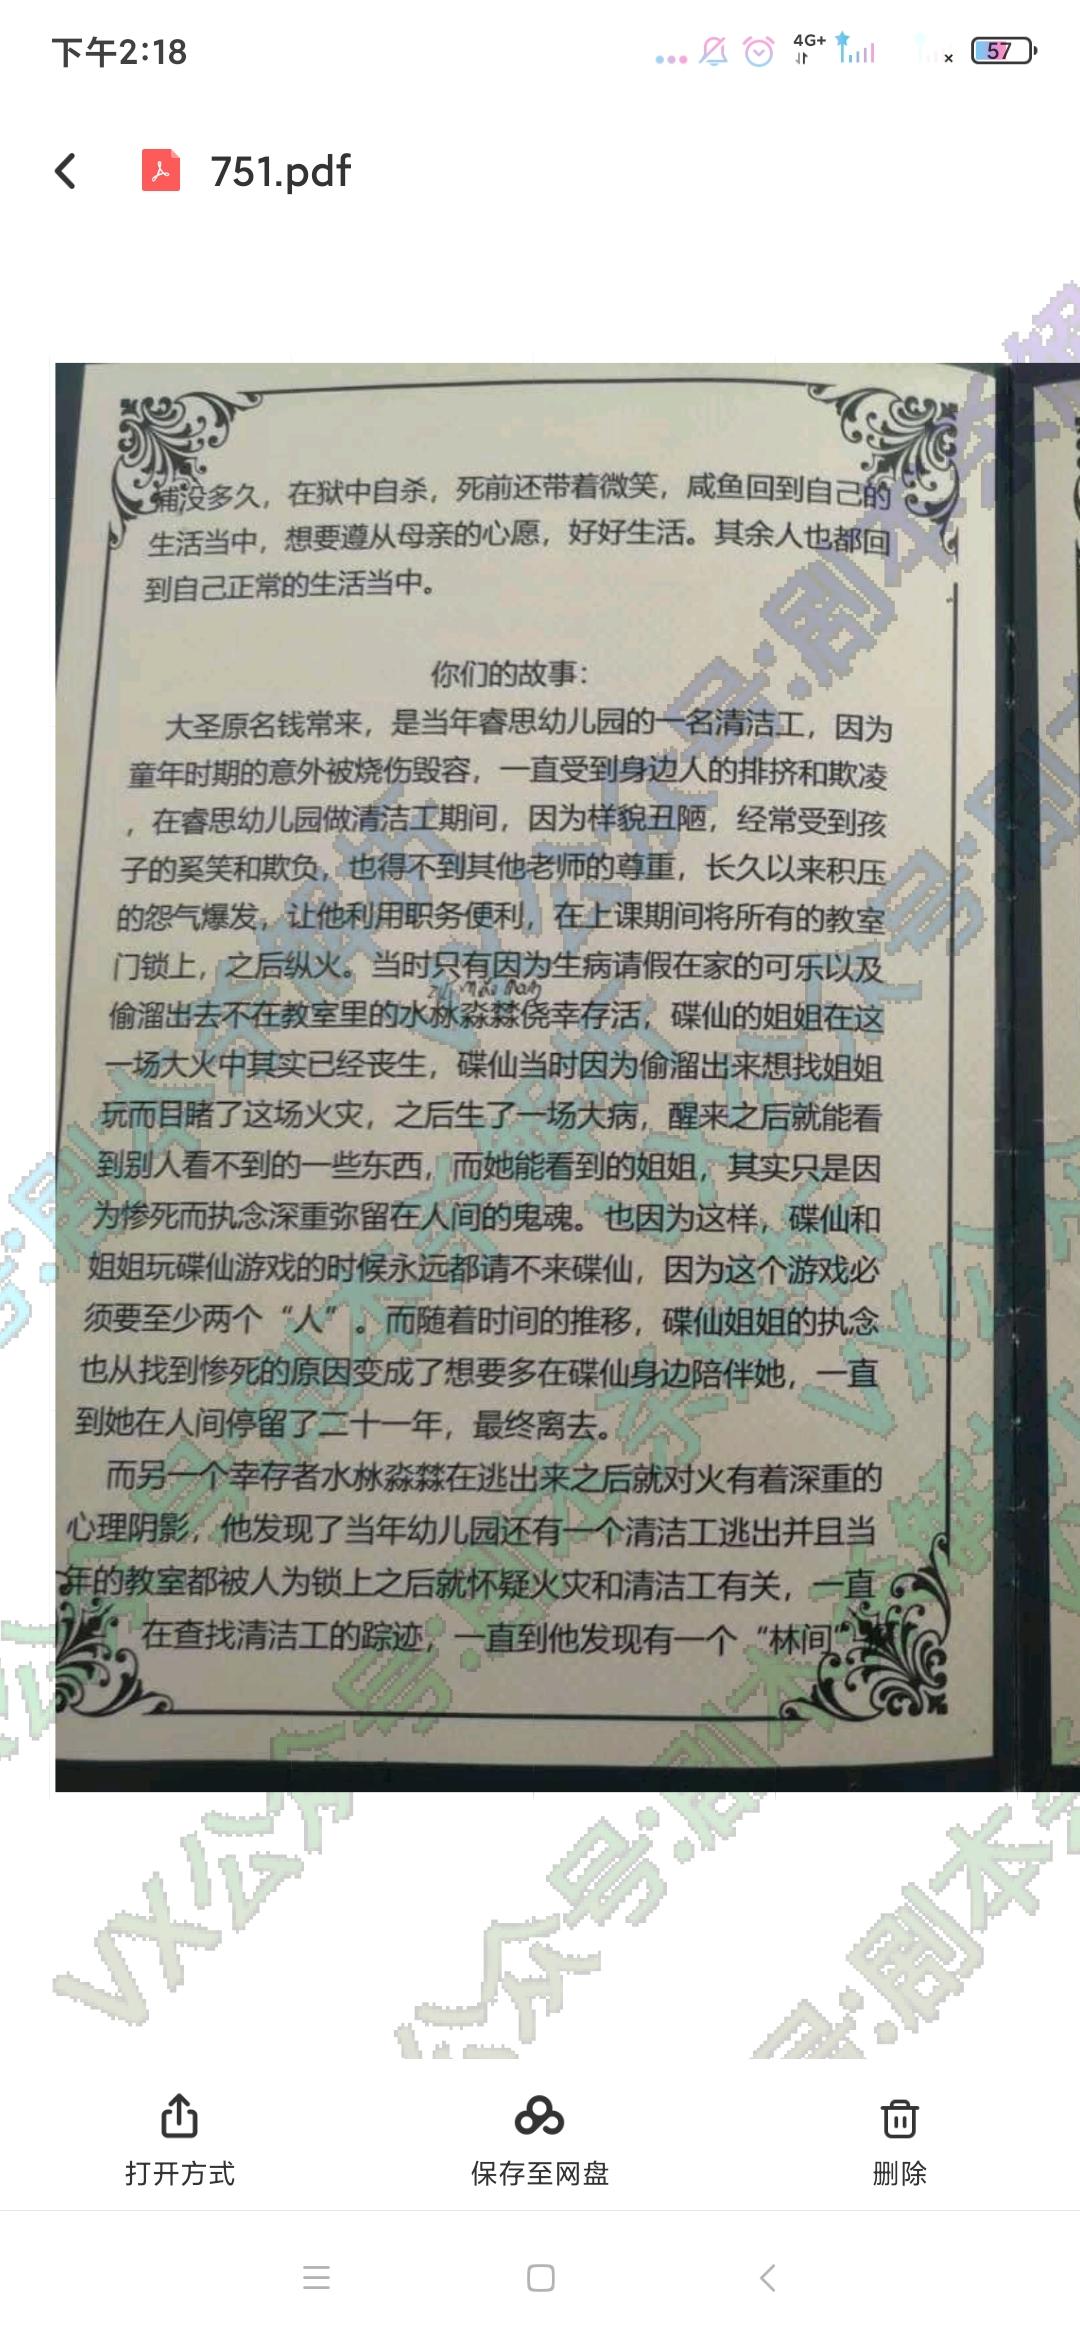 下午2:18
4G+
57
751.pdf
捕没多久，在狱中自杀，死前还带着微笑，咸鱼回到自己的
生活当中，想要遵从母亲的心愿，好好生活。其余人也都回
到自己正常的生活当中。
你们的故事：
大圣原名钱常来，是当年睿思幼儿园的一名清洁工，因为
童年时期的意外被烧伤毁容，一直受到身边人的排挤和欺凌
，在睿思幼儿园做清洁工期间，因为样貌丑陋，经常受到孩
子的奚笑和欺负，也得不到其他老师的尊重，长久以来积压
的怨气爆发，让他利用职务便利，在上课期间将所有的教室
门锁上，之后纵火。当时只有因为生病请假在家的可乐以及
偷溜出去不在教室里的水沝淼㵘侥幸存活，碟仙的姐姐在这
一场大火中其实已经丧生，碟仙当时因为偷溜出来想找姐姐
玩而目睹了这场火灾，之后生了一场大病，醒来之后就能看
到别人看不到的一些东西，而她能看到的姐姐，其实只是因
为惨死而执念深重弥留在人间的鬼魂。也因为这样，碟仙和
姐姐玩碟仙游戏的时候永远都请不来碟仙，因为这个游戏必
须要至少两个“人”。而随着时间的推移，碟仙姐姐的执念
也从找到惨死的原因变成了想要多在碟仙身边陪伴她，一直
到她在人间停留了二十一年，最终离去。
而另一个幸存者水沝淼㵘在逃出来之后就对火有着深重的
心理阴影，他发现了当年幼儿园还有一个清洁工逃出并且当
年的教室都被人为锁上之后就怀疑火灾和清洁工有关，一直
在查找清洁工的踪迹，一直到他发现有一个“林间”
VX公众号:剧本杀解析
打开方式
保存至网盘
删除